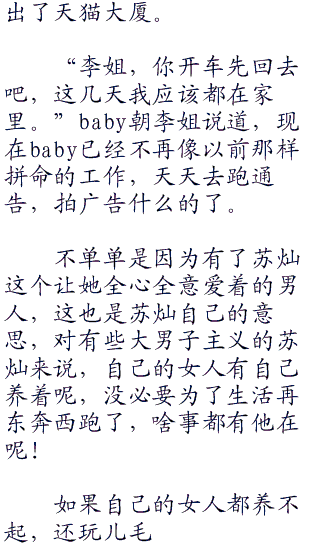 出了天猫大厦。
“李姐，你开车先回去
吧，这几天我应该都在家
里。”baby朝李姐说道，现
在baby已经不再像以前那样
拼命的工作，天天去跑通
告，拍广告什么的了。
不单单是因为有了苏灿
这个让她全心全意爱着的男
人，这也是苏灿自己的意
思，对有些大男子主义的苏
灿来说，自己的女人有自己
养着呢，没必要为了生活再
东奔西跑了，啥事都有他在
呢！
如果自己的女人都养不
起，还玩儿毛